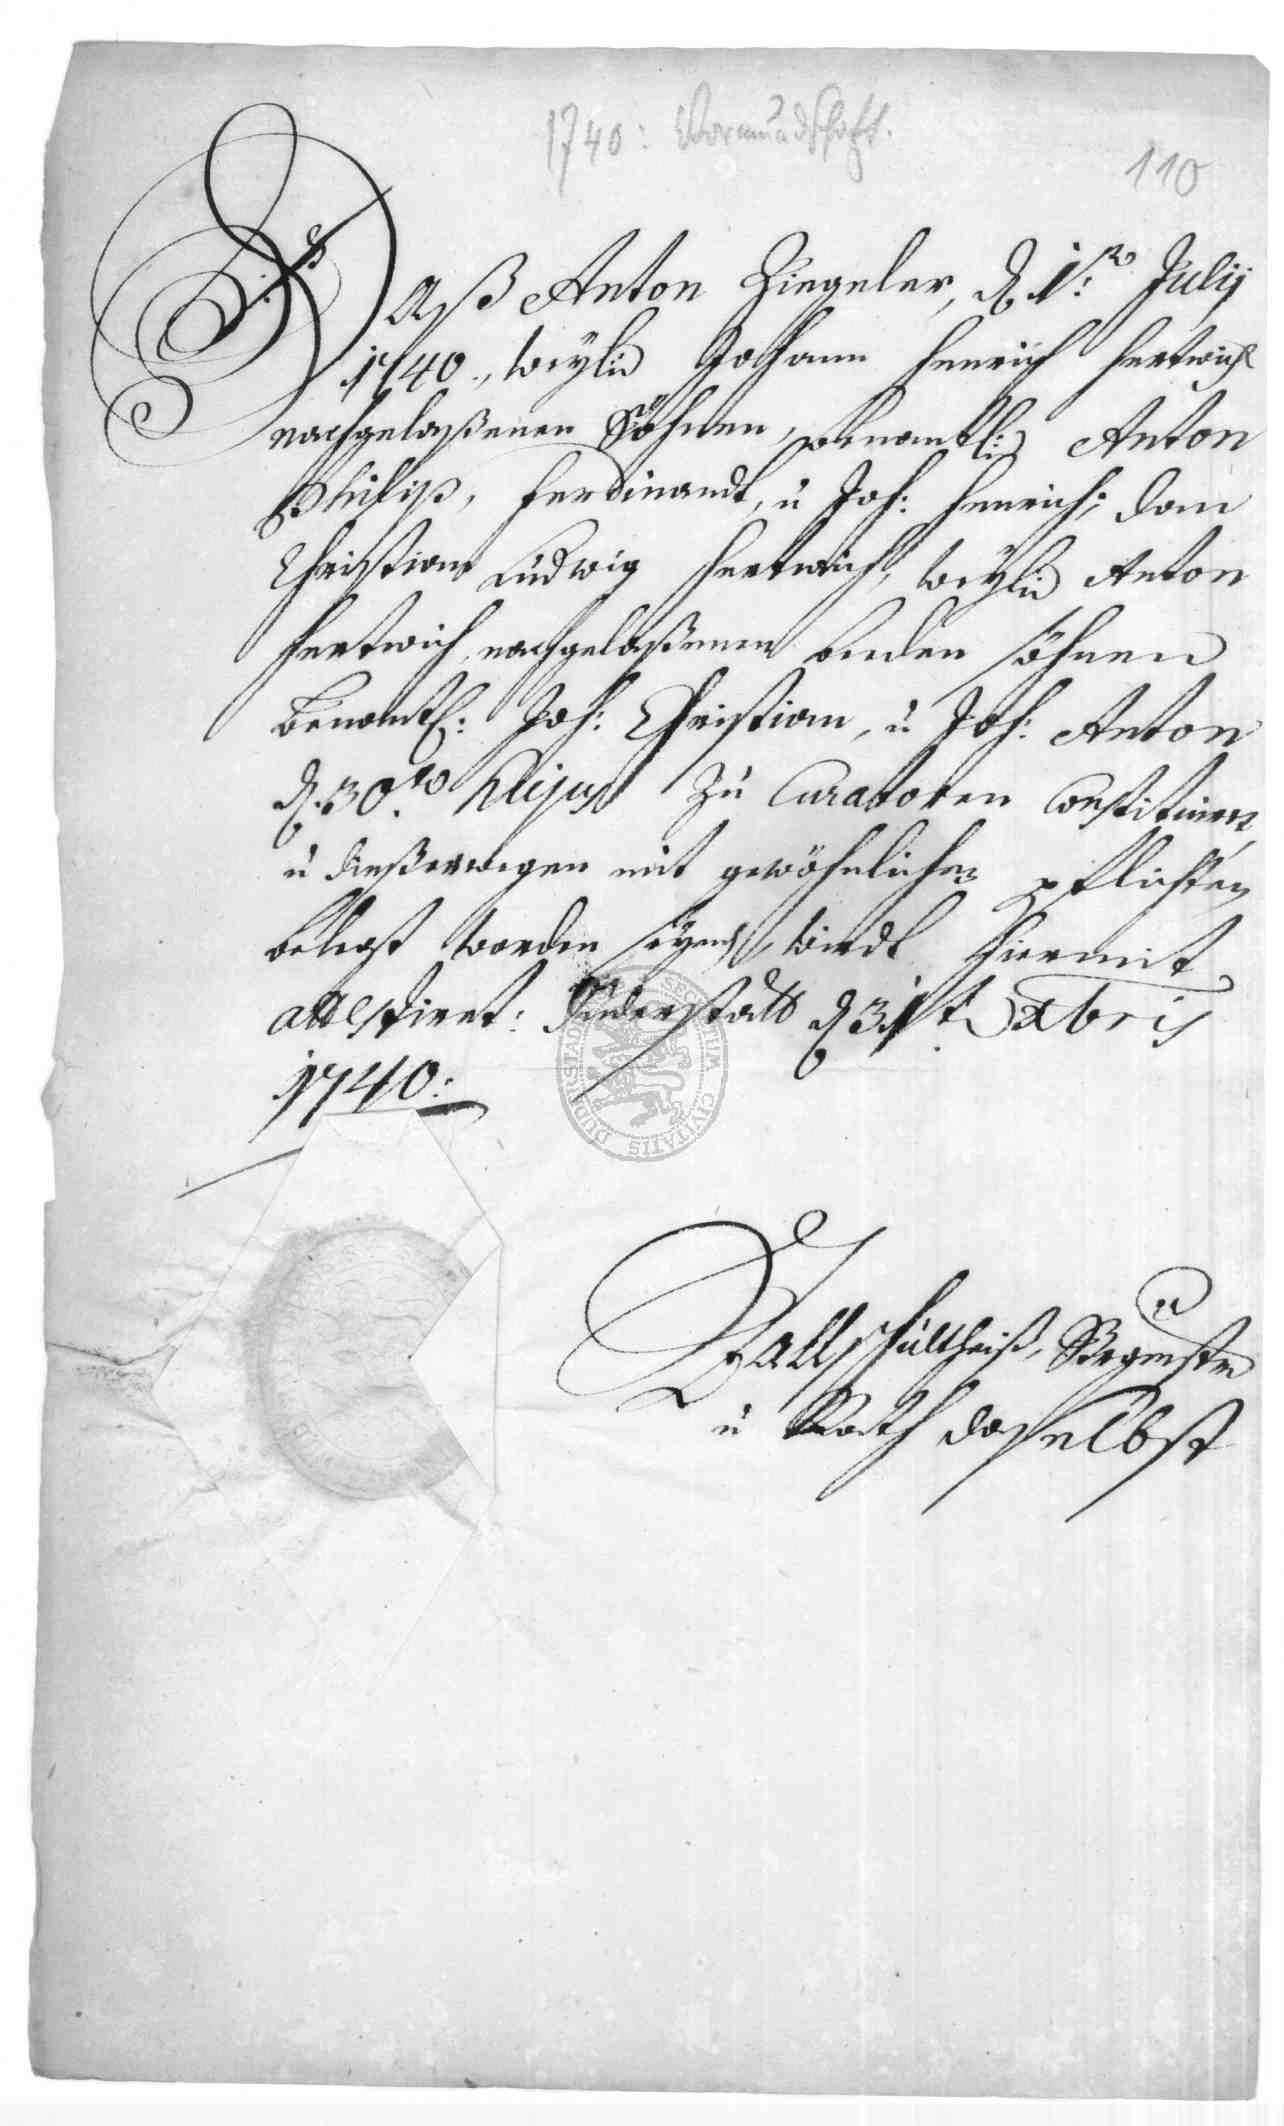 1740: Vormundschaft.
110
Daß Anton Ziegeler, d. 1.ma Julij
1740., weyld Johann Henrich Hertwich
nachgelaßenen Söhnen, benantl: Anton
Philip, Ferdinandt, ü Joh: Henrich; dan
Christian Lüdwig Hertwich, weyld Anton
Hertwich nachgelaßenen beeden söhnen
benantl: Joh: Christian, ü Joh: Anton
d. 30.ma Hujus zü Curatoren Constituirt
ü dießerwegen mit gewöhnlichen pflichten
belegt worden seynd, wirdt hiermit
attestiret: Düderstadt d 31t. Xbris
1740:
SECRETUM CIVITATIS DUDERSTADT
Stattschültheiß, Bürgmstr
ü Rath daselbst